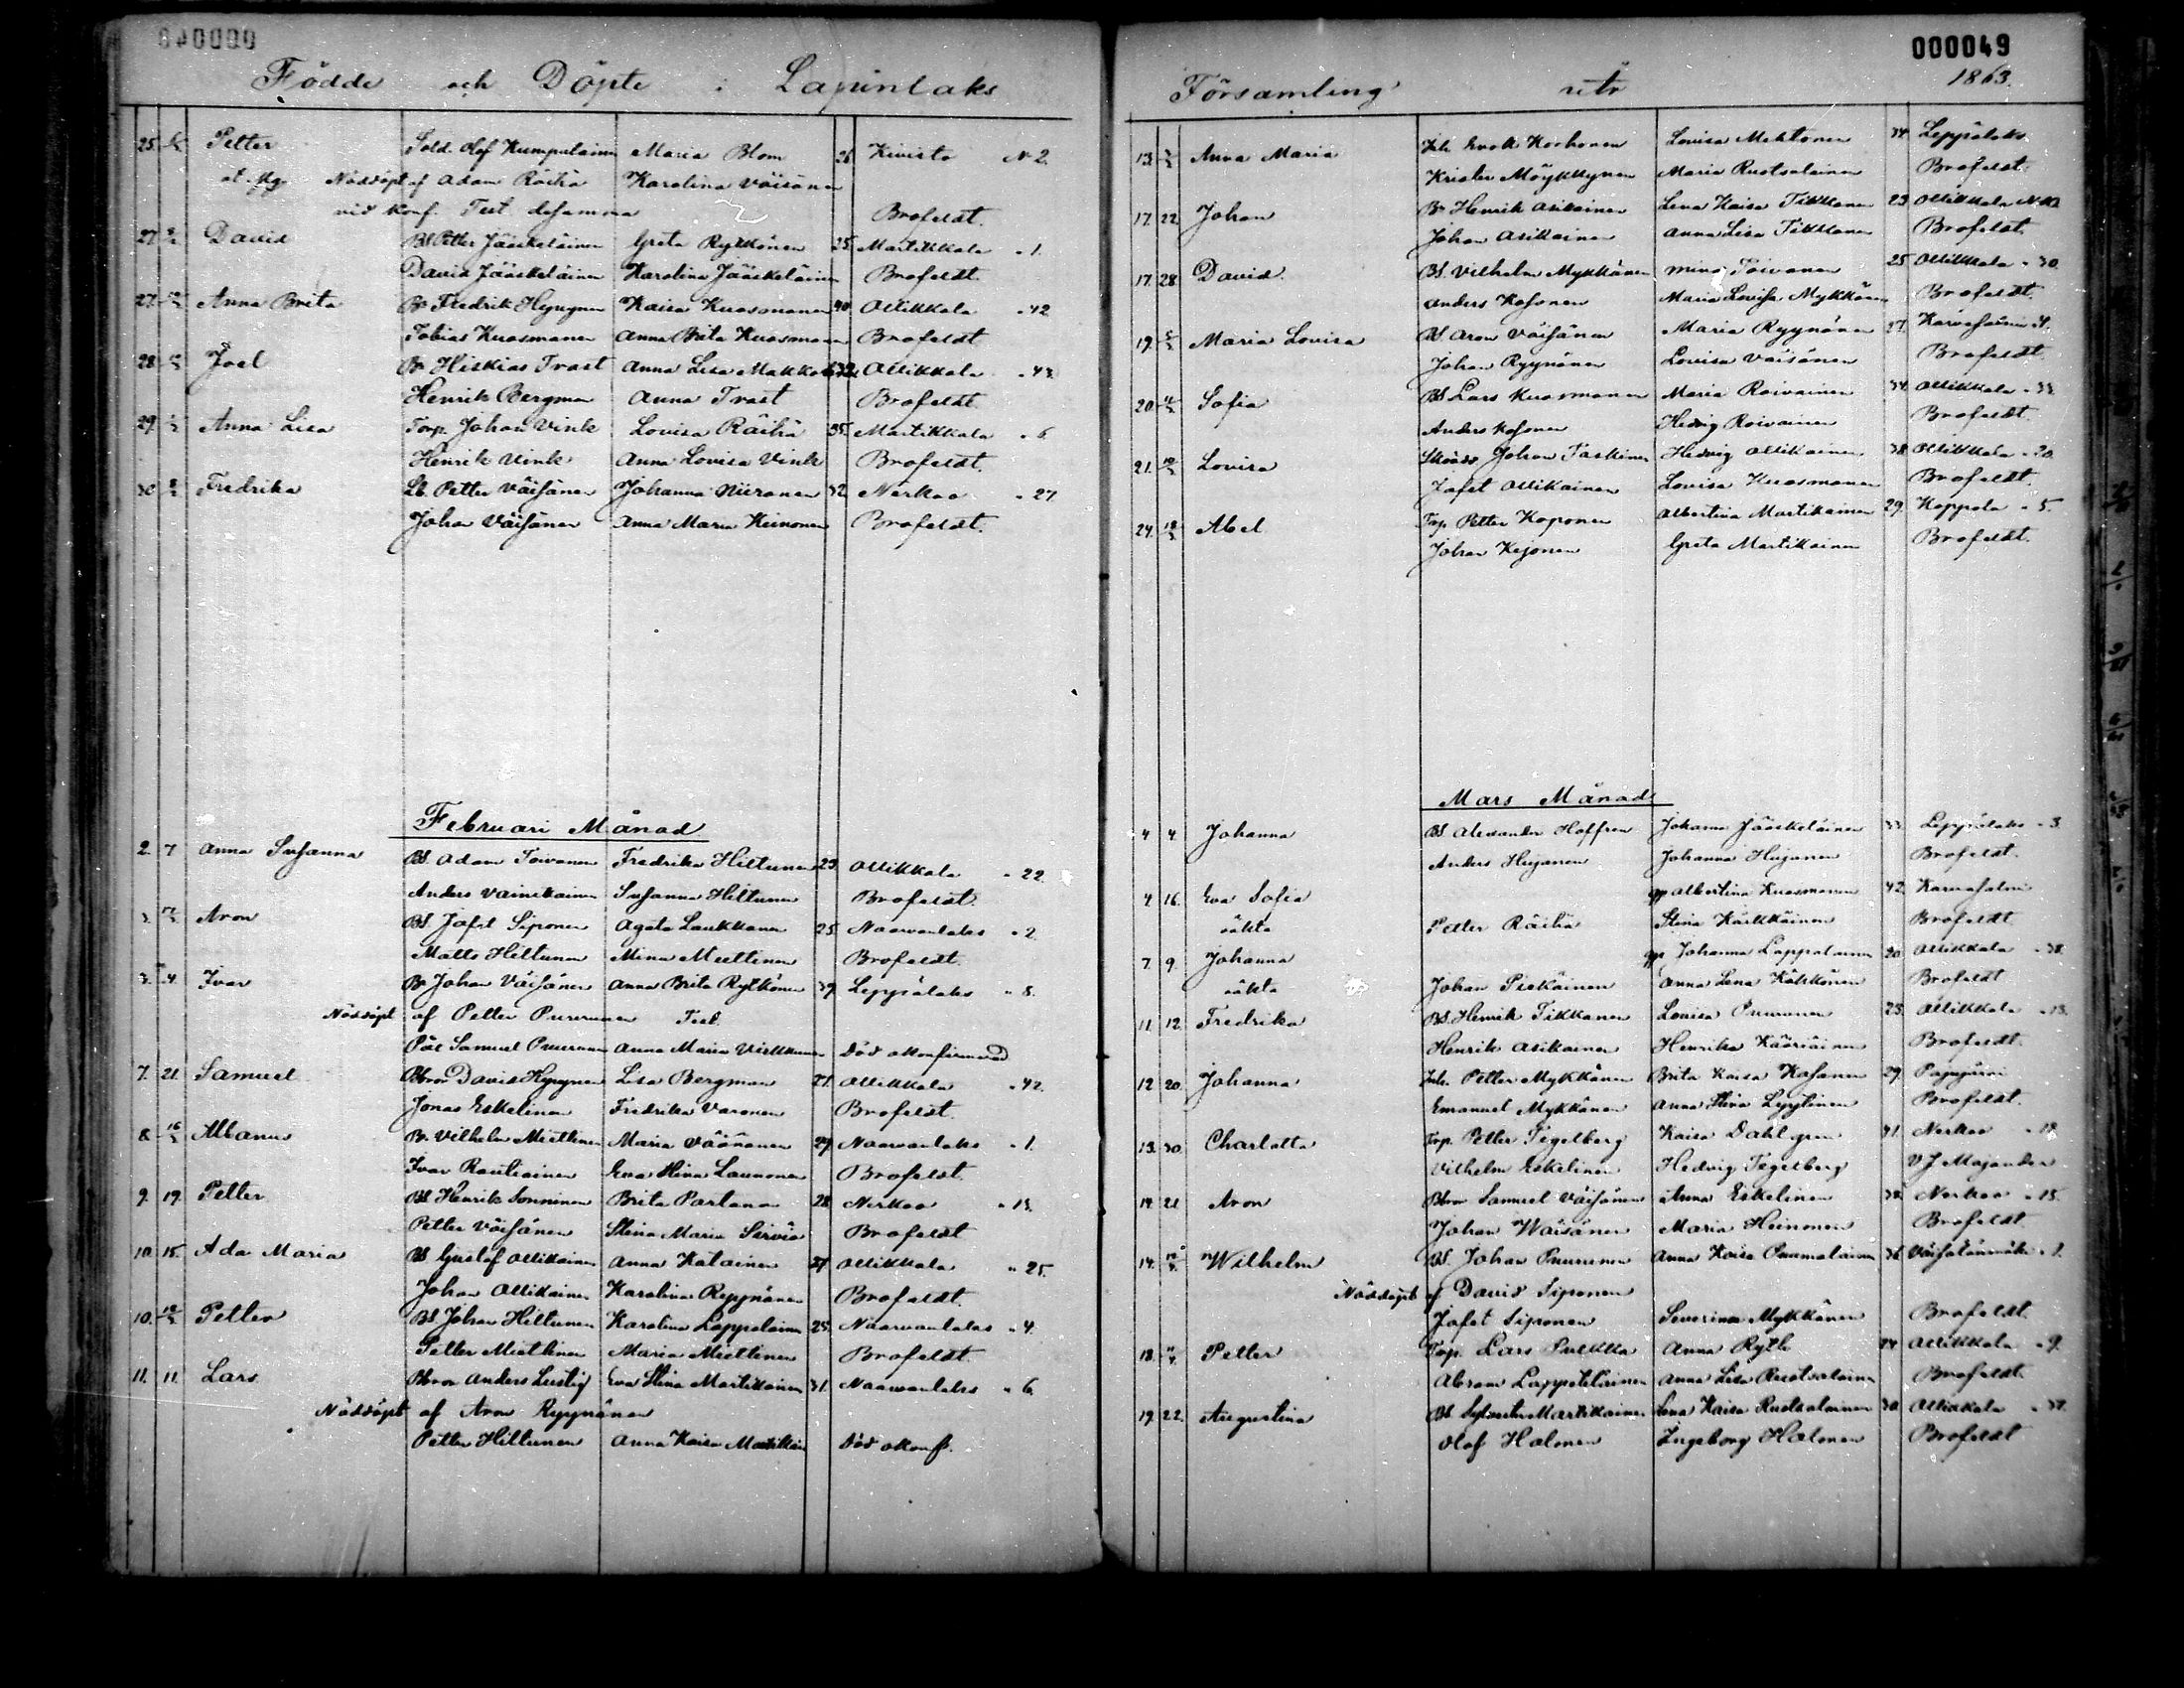 000049
Födde och Döpte i Lapinlaks
25. Petter Sold. Olof Kumpulainen Maria Blom 26 Kivisto N 2.
Nöddöpt af Adam Räihä Karolina Väisänen
vid Konf. Test. desamma Brofeldt.
27. David Bd Petter Jääskeläinen Greta Rytkönen 25. Martikkala " 1.
David Jääskeläinen Karolina Jääskeläinen Brofeldt.
27. Anna Brita Br Fredrik Hyvynen Kaisa Kuosmanen 40 Ollikkala " 42
Tobias Kuosmanen Anna Brita Kuosmanen Brofeldt
28. Joel Br Hiskias Trast Anna Lisa Makkonen 32 Ollikkala " 43.
Henrik Bergman Anna Trast Brofeldt.
29. Anna Lisa Torp. Johan Vink Lovisa Räihä 35. Martikkala " 6.
Henrik Vink Anna Lovisa Vink Brofeldt.
30 Fredrika Petter Väisänen Johanna Niiranen 32 Nerkoo " 27
Johan Väisänen Anna Maria Heinonen Brofeldt.
Februari Månad
2. 7 Anna Susanna Bd. Adam Toivanen Fredrika Hiltunen 23 Ollikkala " 22.
Anders Vainikainen Susanna Hiltunen Brofeldt.
3. Aron Bd. Jafet Siponen Agata Laukkanen 25 Naarvanlaks " 2.
Matts Hiltunen Mina Miettinen Brofeldt.
3. 4. Ivar Br Johan Väisänen Anna Brita Rytkönen 39 Leppälaks " 8.
Nöddöpt af Petter Puurunen Test.
Påe Samuel Puurunen Anna Maria Virkkunen Död okonfirmerad
7. 21. Samuel Bbror David Hyvynen Lisa Bergman 27. Ollikkala " 42.
Jonas Eskelinen Fredrika Varonen Brofeldt.
8. 16 Albanus Br. Vilhelm Miettinen Maria Väänänen 29 Naarvanlaks " 1.
Ivar Rautiainen Eva Stina Launonen Brofeldt.
9. 19. Petter Bd. Henrik Sonninen Brita Partanen 28 Nerkoo " 13.
Petter Väisänen Stina Maria Sirviö Brofeldt
10. 15. Ada Maria Bd. Gustaf Ollikainen Anna Katainen 27 Ollikkala " 25.
Johan Ollikainen Karolina Ryynänen Brofeldt.
10. Petter Bd. Johan Hiltunen Karolina Lappalainen 25. Naarvanlaks " 4.
Petter Miettinen Maria Miettinen Brofeldt.
11. 11. Lars Bbror Anders Lustig Eva Stina Martikainen 31. Naarvanlaks " 6.
Nöddöpt af Aron Ryynänen
Petter Hiltunen Anna Kaisa Martikainen Död okonf.
000049
Församling 1863.
13. Anna Maria Inh. Enok Korhonen Lovisa Mehtonen 34. Leppälaks
Krister Möykkynen Maria Ruotsalainen Brofeldt.
17. 22. Johan Br Henrik Asikainen Lena Kaisa Tikkanen 23 Ollikkala
Johan Asikainen Anna Lisa Tikkanen Brofeldt.
17. 28 David Bd. Vilhelm Mykkänen Mina Toivanen 25 Ollikkala " 30.
Anders Kosonen Maria Lovisa Mykkänen Brofeldt.
19. Maria Lovisa Bd. Aron Väisänen Maria Ryynänen 27.
Johan Ryynänen Lovisa Väisänen Brofeldt
20. Sofia Bd Lars Kuosmanen Maria Roivainen 34. Ollikkala " 33.
Anders Kosonen Hedvig Roivainen Brofeldt.
21. Lovisa Johan Taskinen Hedvig Ollikainen 38 Ollikkala " 20.
Jafet Ollikainen Lovisa Kuosmanen Brofeldt.
24. Abel Torp. Petter Koponen Albertina Martikainen 29. Koppola " 5.
Johan Kejonen Greta Martikainen Brofeldt.
Mars Månad
4 4 Johanna Bd. Alexander Hoffren Johanna Jääskeläinen 33. Leppälaks " 3.
Anders Hujanen Johanna Hujanen Brofeldt.
4 16. Eva Sofia qp Albertina Kuosmanen 42.
oäkta Petter Räihä Stina Kärkkäinen Brofeldt
7. 9. Johanna qp Johanna Lappalainen 20. Ollikkala " 38.
oäkta Johan Piskäinen Anna Lena Brofeldt
11. 12. Fredrika Bd. Henrik Tikkanen Lovisa Puuronen 23. Ollikkala " 13.
Henrik Asikainen Henrika Kääriäinen Brofeldt
12 20. Johanna Inh. Petter Mykkänen Brita Kaisa Kosonen 29. Pajujärvi
Emanuel Mykkänen Anna Stina Lyytinen Brofeldt.
13. 30. Charlotta Torp. Petter Tegelberg Kaisa Dahlgren 41. Nerkoo " 18.
Vilhelm Eskelinen Hedvig Tegelberg V J Majander
14 21 Aron Bbror Samuel Väisänen Anna Eskelinen 38 Nerkoo " 15.
Johan Wäisänen Maria Heinonen Brofeldt
14. Wilhelm Bd. Johan Puurunen Anna Kaisa Puumalainen 36 Väisälänmäki " 1.
Nöddöpt af David Siponen
Jafet Siponen Severina Mykkänen Brofeldt.
18. Petter Torp. Lars Pulkka Anna Ryth 24 Ollikkala " 9.
Abram Lappeteläinen Anna Lisa Ruotsalainen Brofeldt.
19. 22. Augustina Bd. Sylvester Martikainen Lena Kaisa Ruotsalainen 30 Ollikkala " 37.
Olof Halonen Ingeborg Halonen Brofeldt